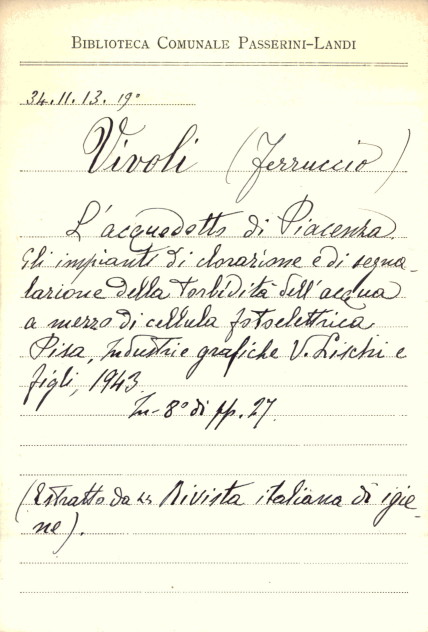 BIBLIOTECA COMUNALE PASSERINI-LANDI
34.11.13. 19º
Vivoli (Ferruccio)
L'acquedotto di Piacenza.
Gli impianti di clorazione e di segna-
lazione della torbidità dell'acqua
a mezzo di cellula fotoelettrica.
Pisa, Industrie grafiche V. Lischi e
figli, 1943.
In-8º di pp. 27.
(Estratto da "Rivista italiana di igie-
ne).